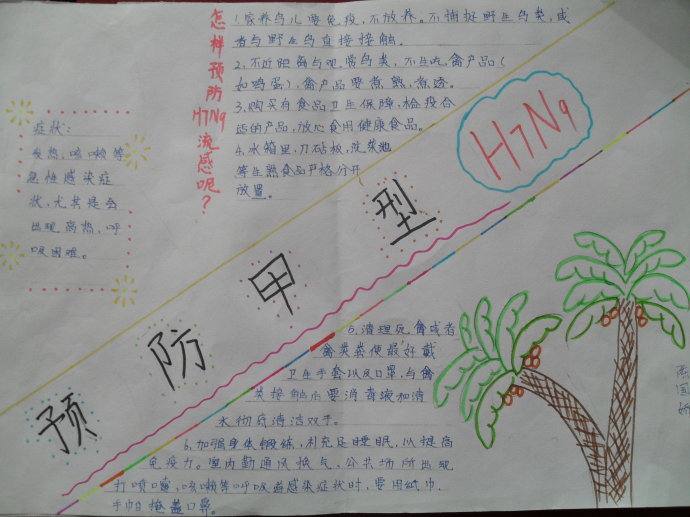 怎样预防H7N9流感呢？
1.家养鸟儿要免疫，不放养。不捕捉野生鸟类，或
者与野生鸟直接接触。
2.不近距离与观赏鸟类，不生吃禽产品（
如鸡蛋），禽产品要煮熟，煮透。
3.购买有食品卫生保障，检疫合
适的产品，放心食用健康食品。
4.冰箱里，刀砧板，洗菜池
等生熟食品严格分开
放置。
症状：
发热，咳嗽等
急性感染症
状，尤其是会
出现高热，呼
吸困难。
H7N9
预防甲型
5.清理玩禽或者
禽类粪便最好戴
卫生手套以及口罩，与禽
类接触后要消毒液和清
水彻底清洁双手。
6.加强身体锻炼，补充足睡眠，以提高
免疫力。室内勤通风换气，公共场所出现
打喷嚏，咳嗽等呼吸道感染症状时，要用纸巾，
手帕掩盖口鼻。